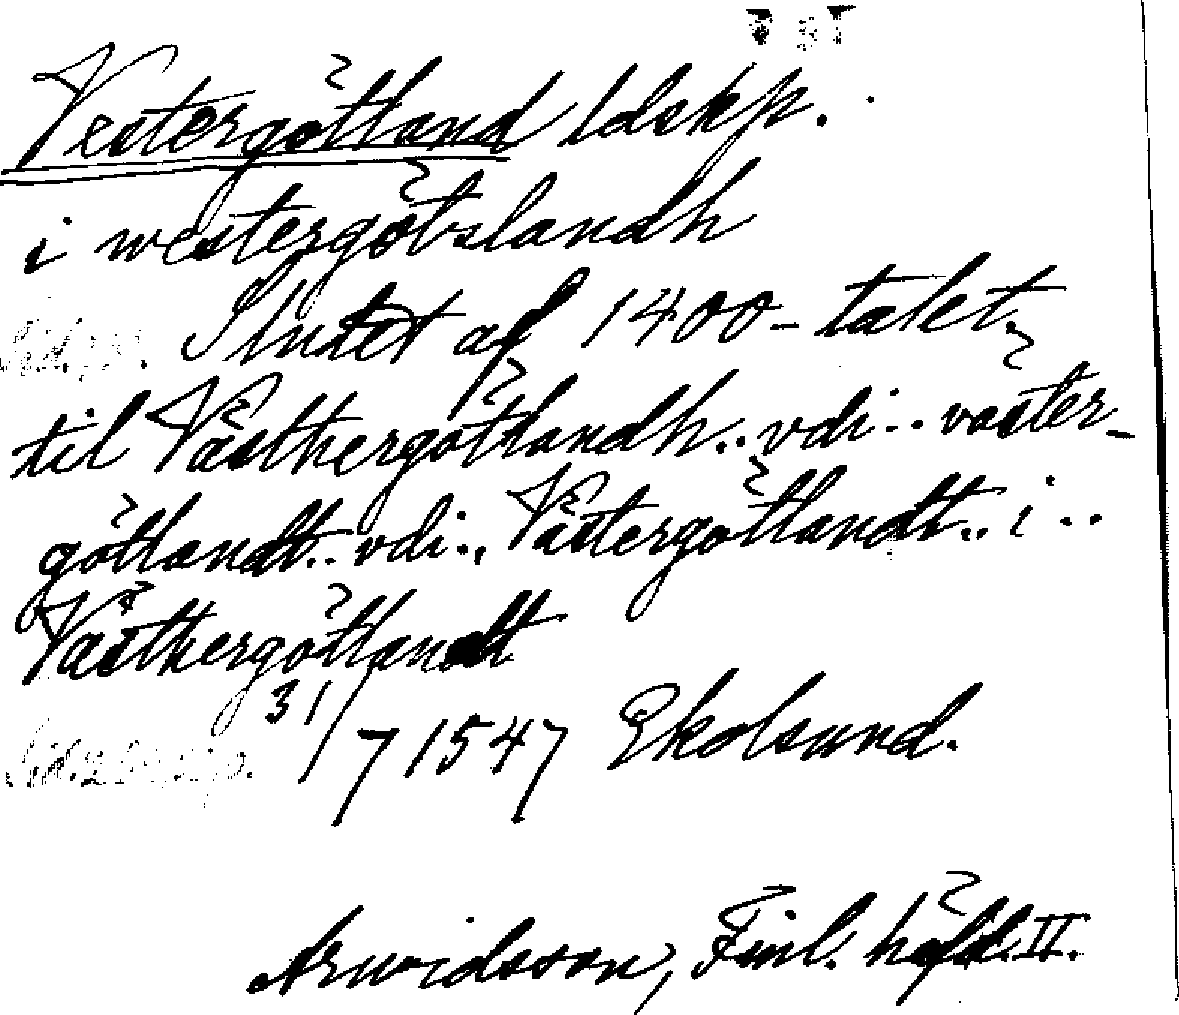 Vestergötland ldskp.
i westergötslandh
Slutet af 1400-talet.
til Västhergötlandh.. vdi.. väster-
götlandt.. vdi.. Västergötlandt.. i..
Västhergötlandt
31/7 1547 Ekolsund.
Arwidsson, Finl. häfd. II.